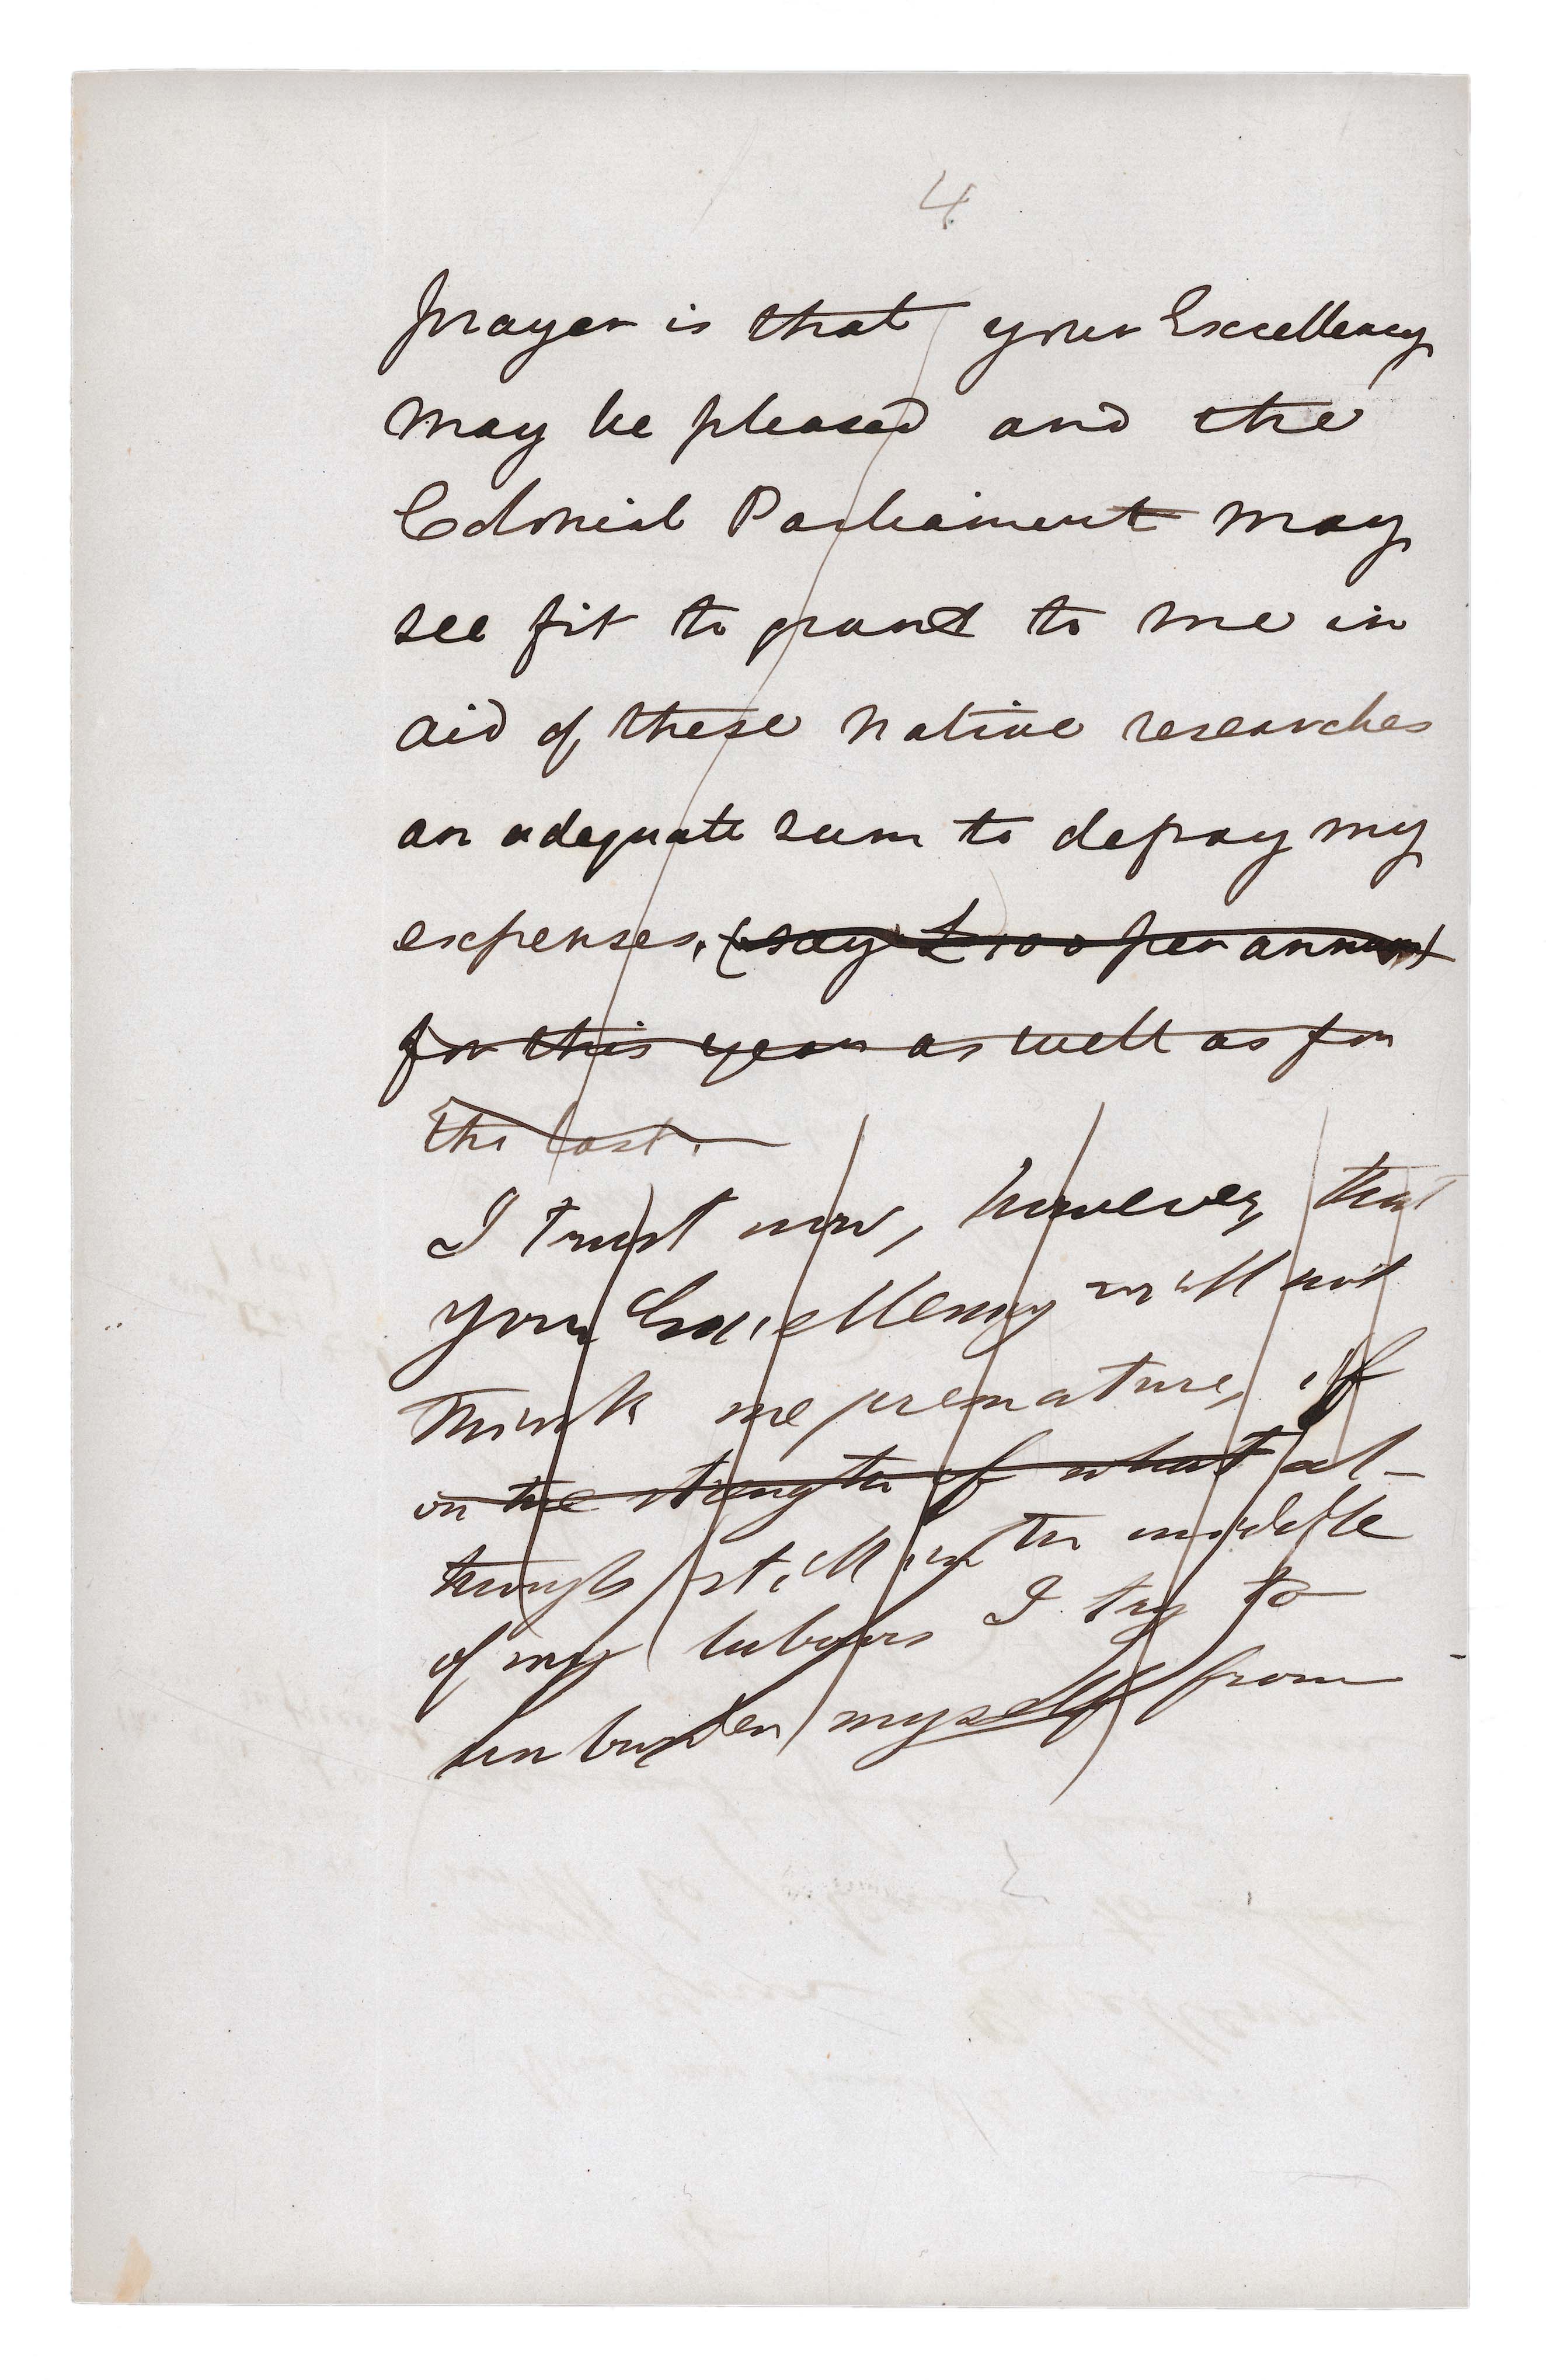 4
prayer is that your Excellency
may be pleased and the
Colonial Parliament may
see fit to grant to me in
aid of these native researches
an adequate sum to defray my
expenses. (say £100 per annum)
for this year as well as for
the last.
I trust now, however, that
your Excellency will not
think me premature, if
on the strength of what al-
though still in the middle
of my labours I try to
unburden myself from